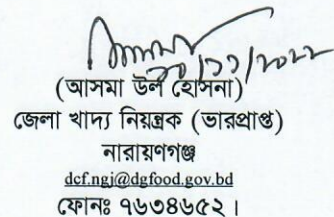 (আসমা উল হোসনা)
জেলা খাদ্য নিয়ন্ত্রক (ভারপ্রাপ্ত)
নারায়ণগঞ্জ
dcf.ngj@dgfood.gov.bd
ফোনঃ ৭৬৩৪৬৫২।